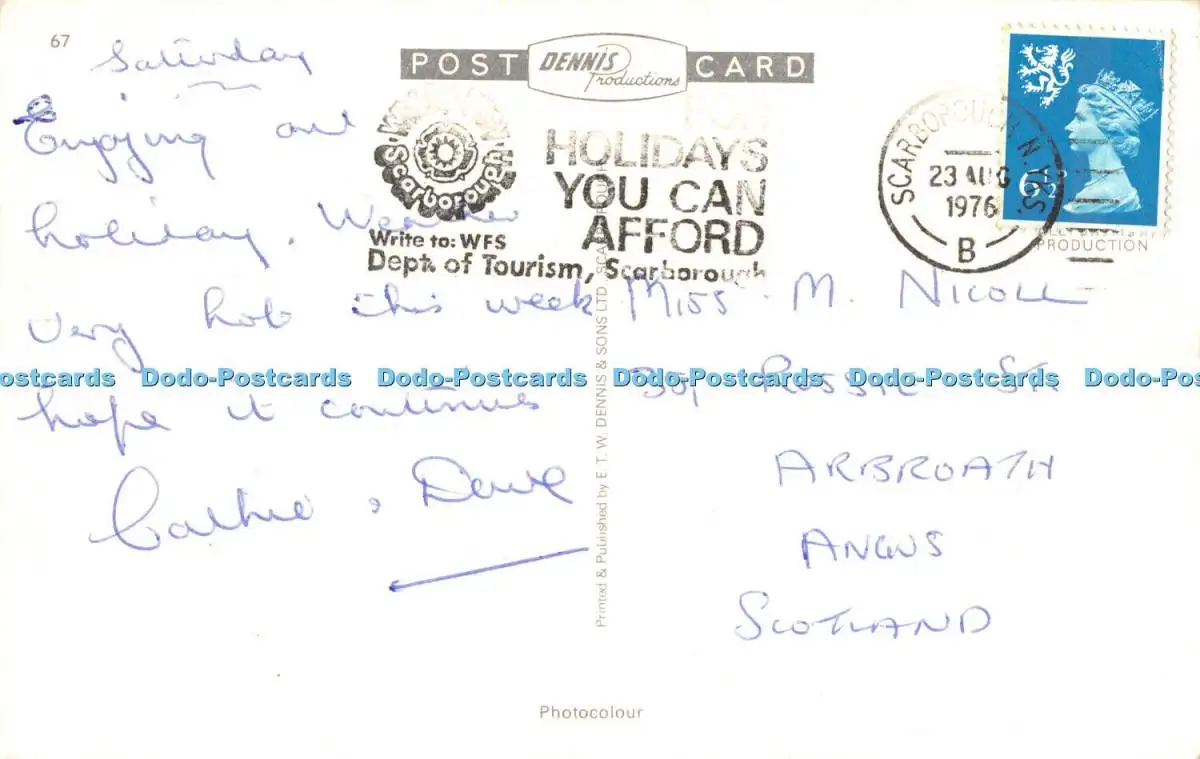 67
Saturday
POST DENNIS Productions CARD
Enjoying our
holiday. Weather
very hot this week
hope it continues
Cathie, Dave
Scarborough
HOLIDAYS
YOU CAN
AFFORD
Write to: WFS
Dept. of Tourism, Scarborough
SCARBOROUGH N. YKS.
23 AUG
1976
B
6½P
PRODUCTION
Miss. M. NICOLL
39, ROSSIE
ARBROATH
ANGUS
SCOTLAND
Printed & Published by E. T. W. DENNIS & SONS LTD., SCARBOROUGH
Photocolour
ostcards Dodo-Postcards Dodo-Postcards Dodo-Postcards Dodo-Postcards Dodo-Po